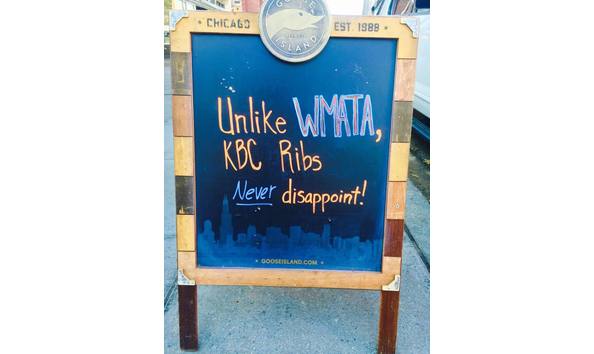 GOOSE
ISLAND
CHICAGO EST. 1988
Unlike WMATA,
KBC Ribs
Never disappoint!
* GOOSEISLAND.COM *